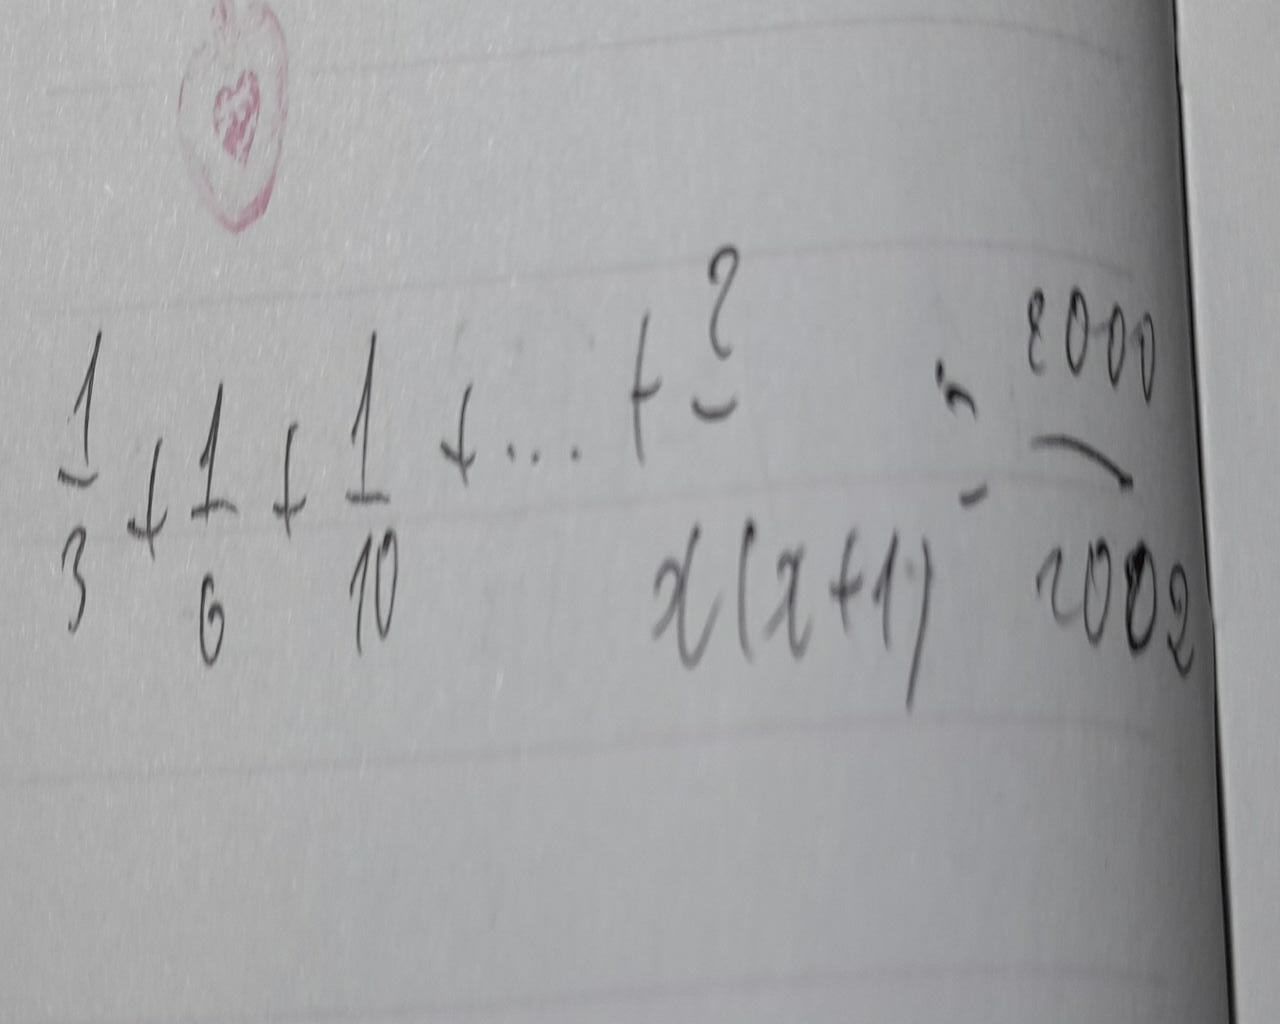 1/3 + 1/6 + 1/10 + ... + 2/x(x+1) = 2000/2002